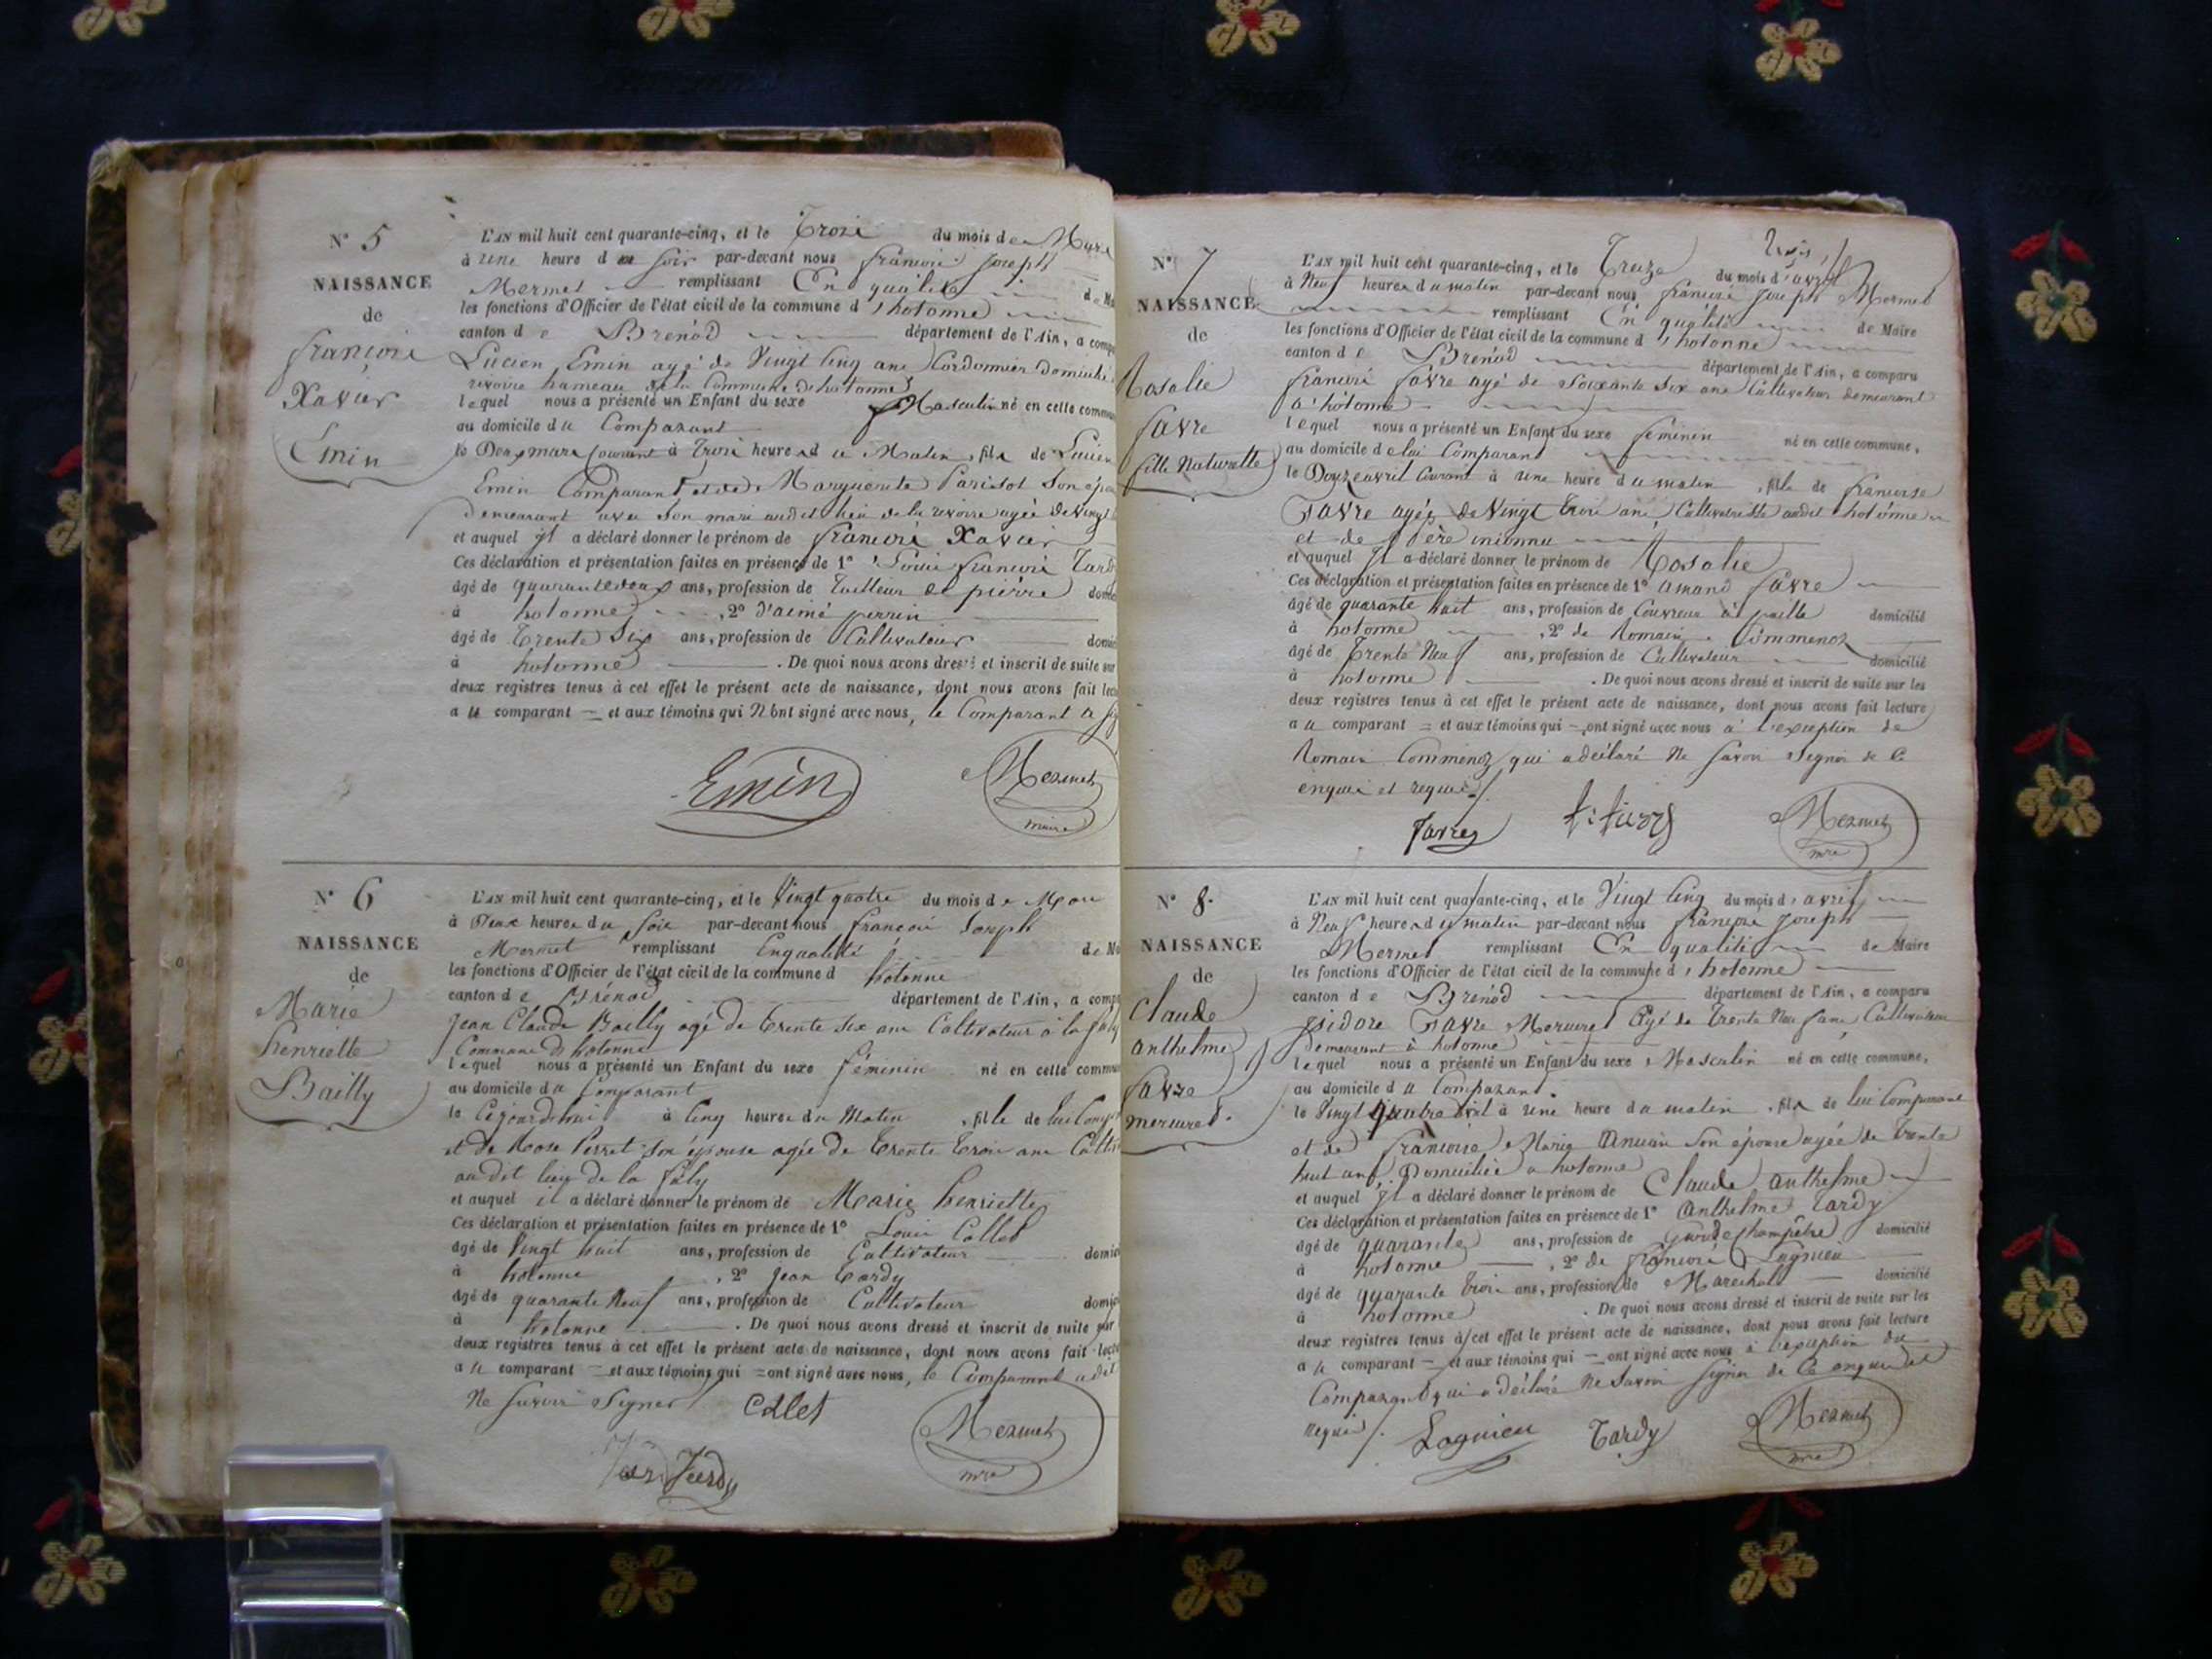 N° 5
NAISSANCE
de
françois
Xavier
Emin
L'AN mil huit cent quarante-cinq, et le Trois du mois de Mars
à une heure du soir par-devant nous françois joseph
Mermet remplissant En qualité de
les fonctions d'Officier de l'état civil de la commune d'hotonne
canton de Brenod département de l'Ain, a comp
Lucien Emin agé de Vingt Cinq ans Cordonnier domicilié
revoire hameau de la Commune de hotonne
lequel nous a présenté un Enfant du sexe Masculin né en cette commun
au domicile du Comparant
le Deux mars Courant à trois heures du Matin, fils de Lucien
Emin Comparant et de Marguerite Paristot Son
demeurant avec Son mari audit lieu de la revoire agée de Vingt
et auquel jl a déclaré donner le prénom de françois Xavier
Ces déclaration et présentation faites en présence de 1° Louis françois Tard
âgé de quarante deux ans, profession de Tailleur de pierre domi
à hotonne, 2° d'aimé perrin
âgé de Trente Six ans, profession de Cultivateur domi
à hotonne. De quoi nous avons dressé et inscrit de suite sur
deux registres tenus à cet effet le présent acte de naissance, dont nous avons fait lec
au comparant et aux témoins qui N'ont signé avec nous, le Comparant a
Emin
Mermet
maire
N° 6
NAISSANCE
de
Marie
henriette
Bailly
L'AN mil huit cent quarante-cinq, et le Vingt quatre du mois de Mars
à Deux heures du Soir par-devant nous françois Joseph
Mermet remplissant En qualité de
les fonctions d'Officier de l'état civil de la commune d hotonne
canton de Brénod département de l'Ain, a comp
Jean Claude Bailly agé de trente six ans Cultivateur à la
Commune d'hotonne
lequel nous a présenté un Enfant du sexe féminin né en cette commu
au domicile du Comparant
le Cejourdhui à Cinq heures du Matin, fille de lui
et de Rose Perret son épouse agée de trente trois ans
audit lieu de la
et auquel il a déclaré donner le prénom de Marie henriette
Ces déclaration et présentation faites en présence de 1° Louis Collet
âgé de Vingt huit ans, profession de Cultivateur domi
à hotonne, 2° Jean Tardy
âgé de quarante Neuf ans, profession de Cultivateur domi
à hotonne. De quoi nous avons dressé et inscrit de suite sur
deux registres tenus à cet effet le présent acte de naissance, dont nous avons fait lec
au comparant et aux témoins qui ont signé avec nous, le Comparant a dit
Ne Savoir Signer
Collet
Mermet
mre
N° 7
NAISSANCE
de
Rosalie
favre
fille Naturelle
L'AN mil huit cent quarante-cinq, et le Treize du mois d'avril
à Neuf heures du matin par-devant nous françois joseph Mermet
remplissant En qualité de Maire
les fonctions d'Officier de l'état civil de la commune d'hotonne
canton de Brenod département de l'Ain, a comparu
françois favre agé de Soixante Six ans Cultivateur demeurant
à hotonne
lequel nous a présenté un Enfant du sexe feminin né en cette commune,
au domicile de lui Comparant
le Douze avril Courant à une heure du matin, fille de francoise
favre agée de Vingt trois ans, Cultivatrice audit hotonne
et de père inconnu
et auquel jl a déclaré donner le prénom de Rosalie
Ces déclaration et présentation faites en présence de 1° amand favre
âgé de quarante huit ans, profession de Couvreur à paille domicilié
à hotonne, 2° de Romain Commenoz
âgé de Trente Neuf ans, profession de Cultivateur domicilié
à hotonne. De quoi nous avons dressé et inscrit de suite sur les
deux registres tenus à cet effet le présent acte de naissance, dont nous avons fait lecture
au comparant et aux témoins qui ont signé avec nous à l'exception de
Romain Commenoz qui a déclaré Ne Savoir Signer de ce
enquis et requis
favre
Mermet
mre
N° 8.
NAISSANCE
de
Claude
anthelme
favre
mermet.
L'AN mil huit cent quarante-cinq, et le Vingt Cinq du mois d'avril
à Neuf heures du matin par-devant nous françois joseph
Mermet remplissant En qualité de Maire
les fonctions d'Officier de l'état civil de la commune d'hotonne
canton de Brenod département de l'Ain, a comparu
jsidore favre Mermet Agé de Trente Neuf ans Cultivateur
demeurant à hotonne
lequel nous a présenté un Enfant du sexe Masculin né en cette commune,
au domicile du Comparant
le Vingt quatre avril à une heure du matin, fils de lui Comparant
et de francoise Marie son épouse agée de Trente
huit ans, Domiciliée a hotonne
et auquel jl a déclaré donner le prénom de Claude anthelme
Ces déclaration et présentation faites en présence de 1° Anthelme Tardy
âgé de quarante ans, profession de Garde Champêtre domicilié
à hotonne, 2° de françois Lagnieu
âgé de quarante trois ans, profession de Marechal domicilié
à hotonne. De quoi nous avons dressé et inscrit de suite sur les
deux registres tenus à cet effet le présent acte de naissance, dont nous avons fait lecture
au comparant et aux témoins qui ont signé avec nous à l'exception du
Comparant qui a déclaré Ne Savoir Signer de ce enquis et
requis.
Lagnieu
Tardy
Mermet
mre